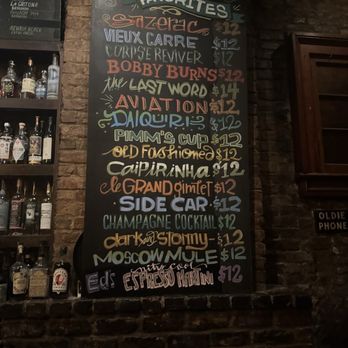 FAVORITES
Sazerac $12
VIEUX CARRE $12
CORPSE REVIVER $12
BOBBY BURNS $12
the LAST WORD $14
AVIATION $12
DAIQUIRI $12
PIMM'S CUP $12
OLD FASHIONED $12
CAIPIRINHA $12
le GRAND gimlet $12
SIDE CAR $12
CHAMPAGNE COCKTAIL $12
dark and Stormy $12
MOSCOW MULE $12
Ed's ESPRESSO MARTINI $12
OLDIE
PHONE